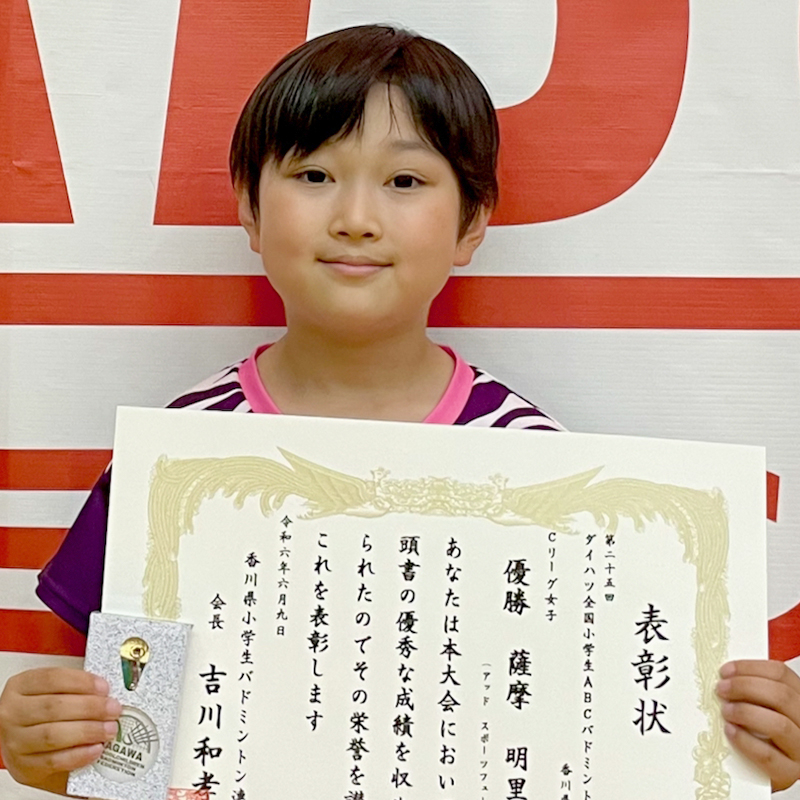 表彰状
第二十五回
ダイハツ全国小学生ABCバドミント
香川県
Cリーグ女子
優勝 薩摩 明里
(アッド スポーツフュー
あなたは本大会におい
頭書の優秀な成績を収め
られたのでその栄誉を讃
これを表彰します
令和六年六月九日
香川県小学生バドミントン連
会長 吉川和孝
KAGAWA
BADMINTON
FEDERATION